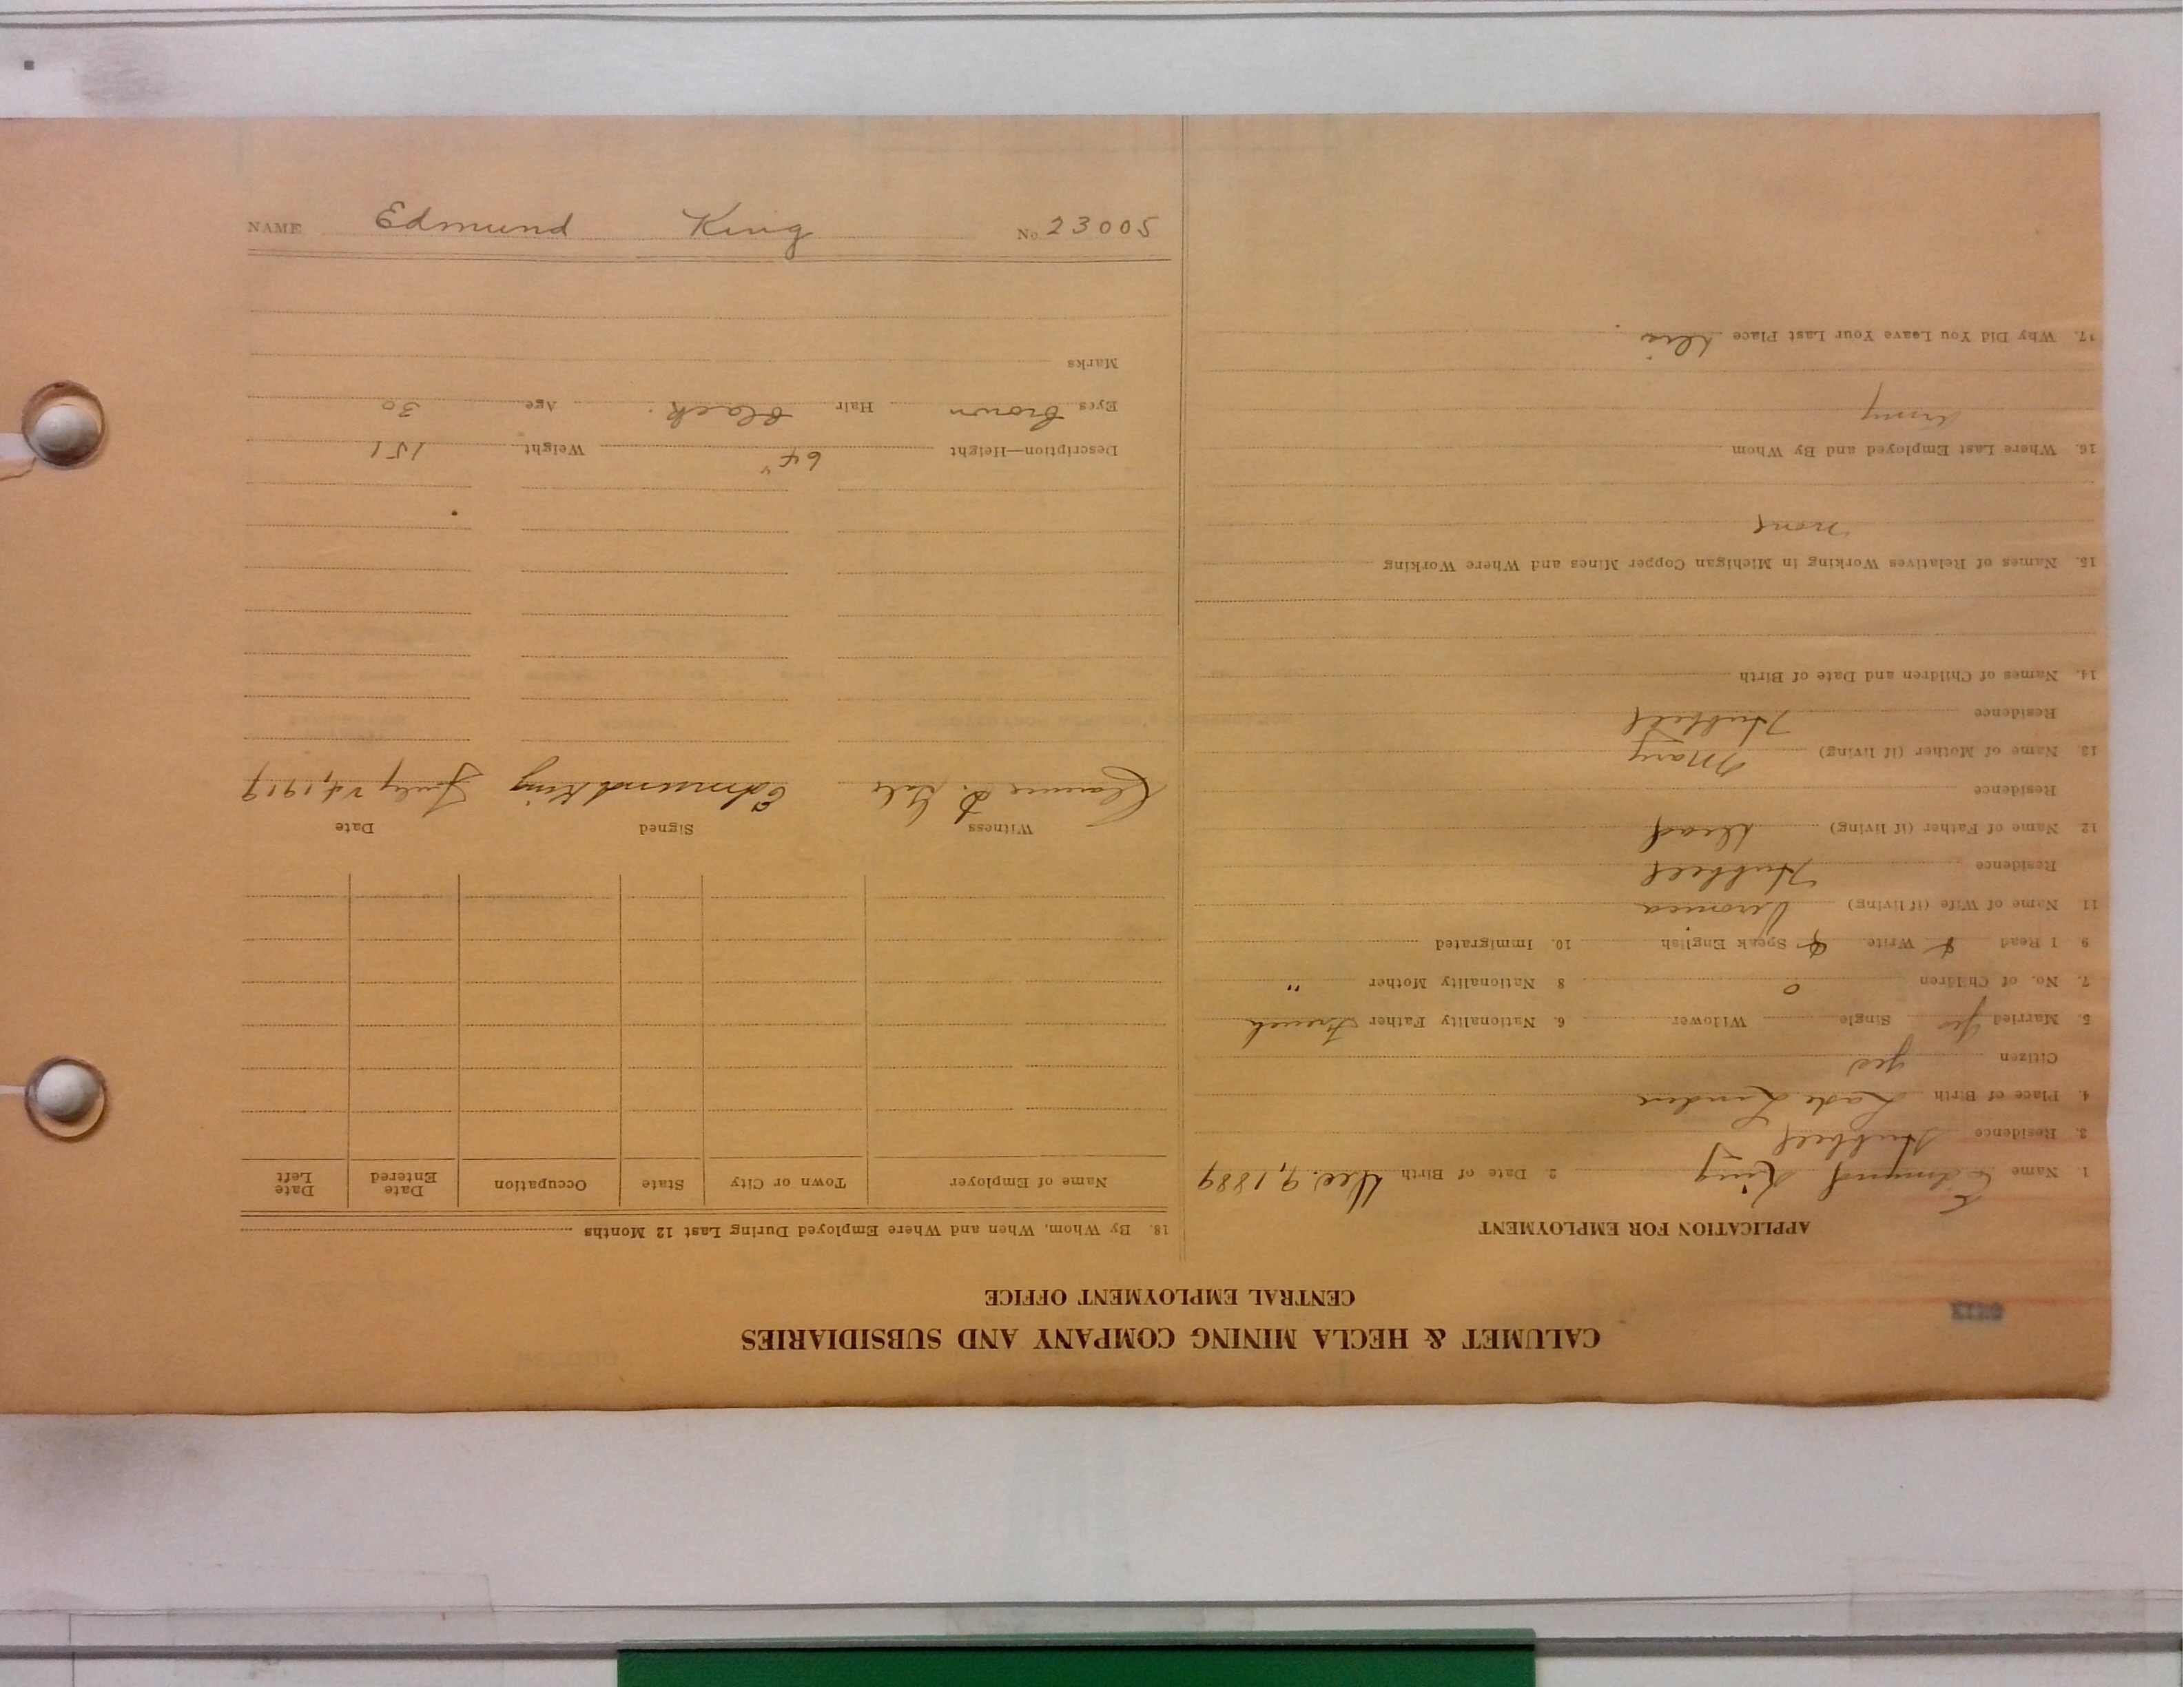 NAME Edmund King No. 23005
CALUMET & HECLA MINING COMPANY AND SUBSIDIARIES
CENTRAL EMPLOYMENT OFFICE
APPLICATION FOR EMPLOYMENT
1. Name Edmund King 2 Date of Birth Dec. 9, 1889
3. Residence Hubbell
4. Place of Birth Lake Linden
Citizen yes
5. Married yes Single Widower 6. Nationality Father French
7. No. of Children 0 8 Nationality Mother "
9 I Read Write Speak English 10. Immigrated
11. Name of Wife (if living) Veronica
Residence Hubbell
12. Name of Father (if living) Dead
Residence
13. Name of Mother (if living) Mary
Residence Hubbell
14. Names of Children and Date of Birth
15. Names of Relatives Working in Michigan Copper Mines and Where Working
none
16. Where Last Employed and By Whom
Army
17. Why Did You Leave Your Last Place
18. By Whom, When and Where Employed During Last 12 Months
Name of Employer Town or City State Occupation Date Entered Date Left
Witness Signed Date
Clarence D. Edmund King July 24, 1919
Description—Height 64" Weight 151
Eyes brown Hair black Age 30
Marks